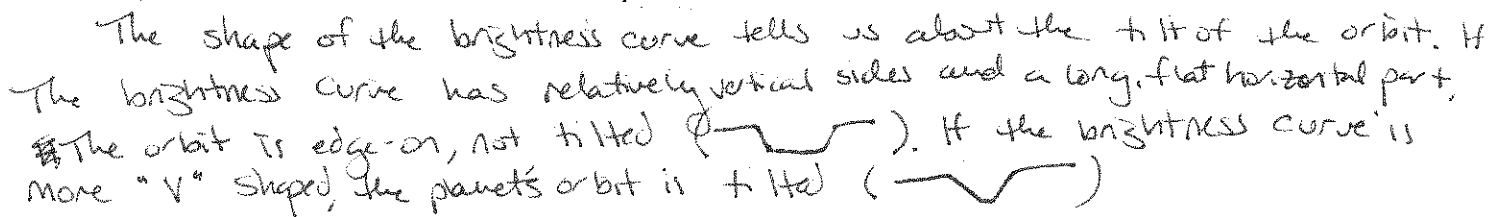 The shape of the brightness curve tells us about the tilt of the orbit. If
The brightness curve has relatively vertical sides and a long, flat horizontal part,
The orbit is edge-on, not tilted ( ). If the brightness curve is
more "V" shaped, the planet's orbit is tilted ( )